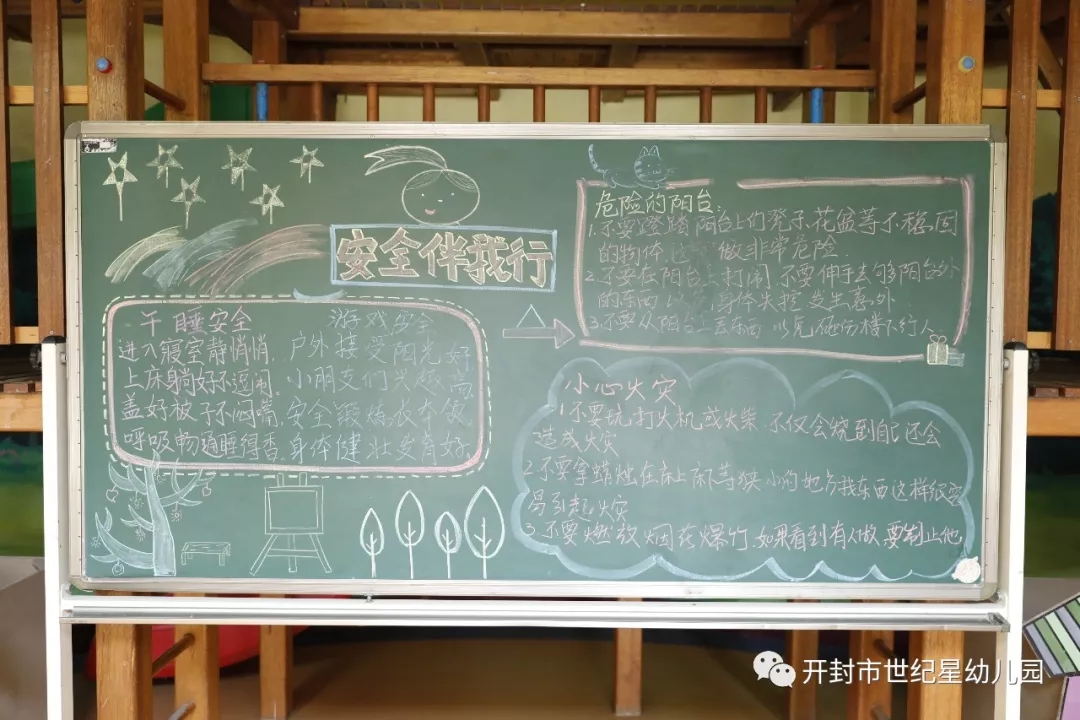 安全伴我行
午睡安全
进入寝室静悄悄
上床躺好不逗闹
盖好被子不闷嘴
呼吸畅通睡得香
游戏安全
户外接受阳光好
小朋友们兴趣高
安全锻炼
身体健壮发育好
危险的阳台:
1.不要蹬踏阳台上的凳子、花盆等不稳固
的物体 做非常危险.
2.不要在阳台上打闹,不要伸手去够阳台外
的东西 以 身体失控发生意外
3.不要从阳台上丢东西 以免砸伤楼下行人
小心火灾
1.不要玩打火机或火柴.不仅会烧到自己还会
造成火灾
2.不要拿蜡烛在床上床下等狭小的地方找东西这样很容
易引起火灾
3.不要燃放烟花爆竹.如果看到有人做要制止他
开封市世纪星幼儿园